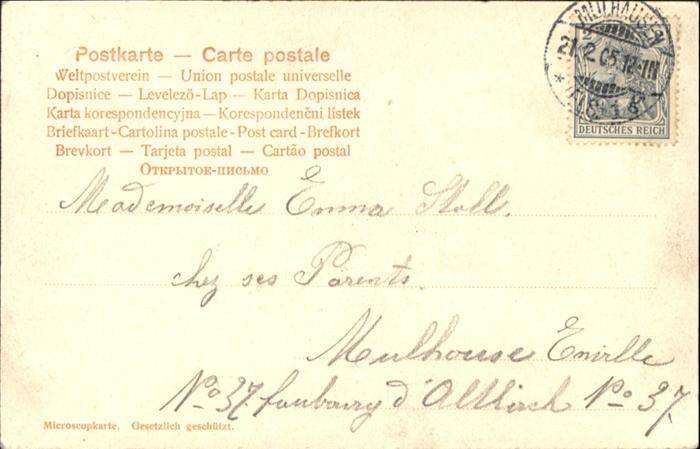 Postkarte — Carte postale
Weltpostverein — Union postale universelle
Dopisnice — Levelező-Lap — Karta Dopisnica
Karta korespondencyjna — Korespondenční lístek
Briefkaart-Cartolina postale-Post card-Brefkort
Brevkort — Tarjeta postal — Cartão postal
Открытое-письмо
MÜLHAUSEN
21.2.05.
DEUTSCHES REICH
Mademoiselle Emma Stoll.
chez ses Parents.
Mulhouse Enville
No 37. faubourg d'Altkirch No 37.
Microscupkarte. Gesetzlich geschützt.